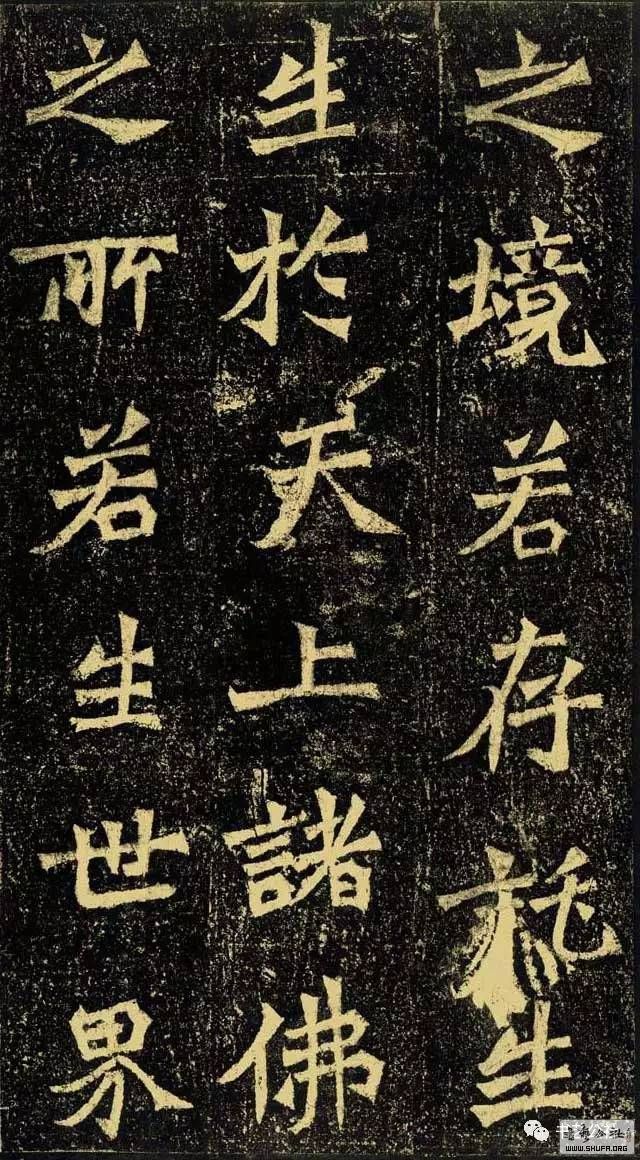 之境若存託生
生於天上諸佛
之所若生世界
WWW.SHUFA.ORG